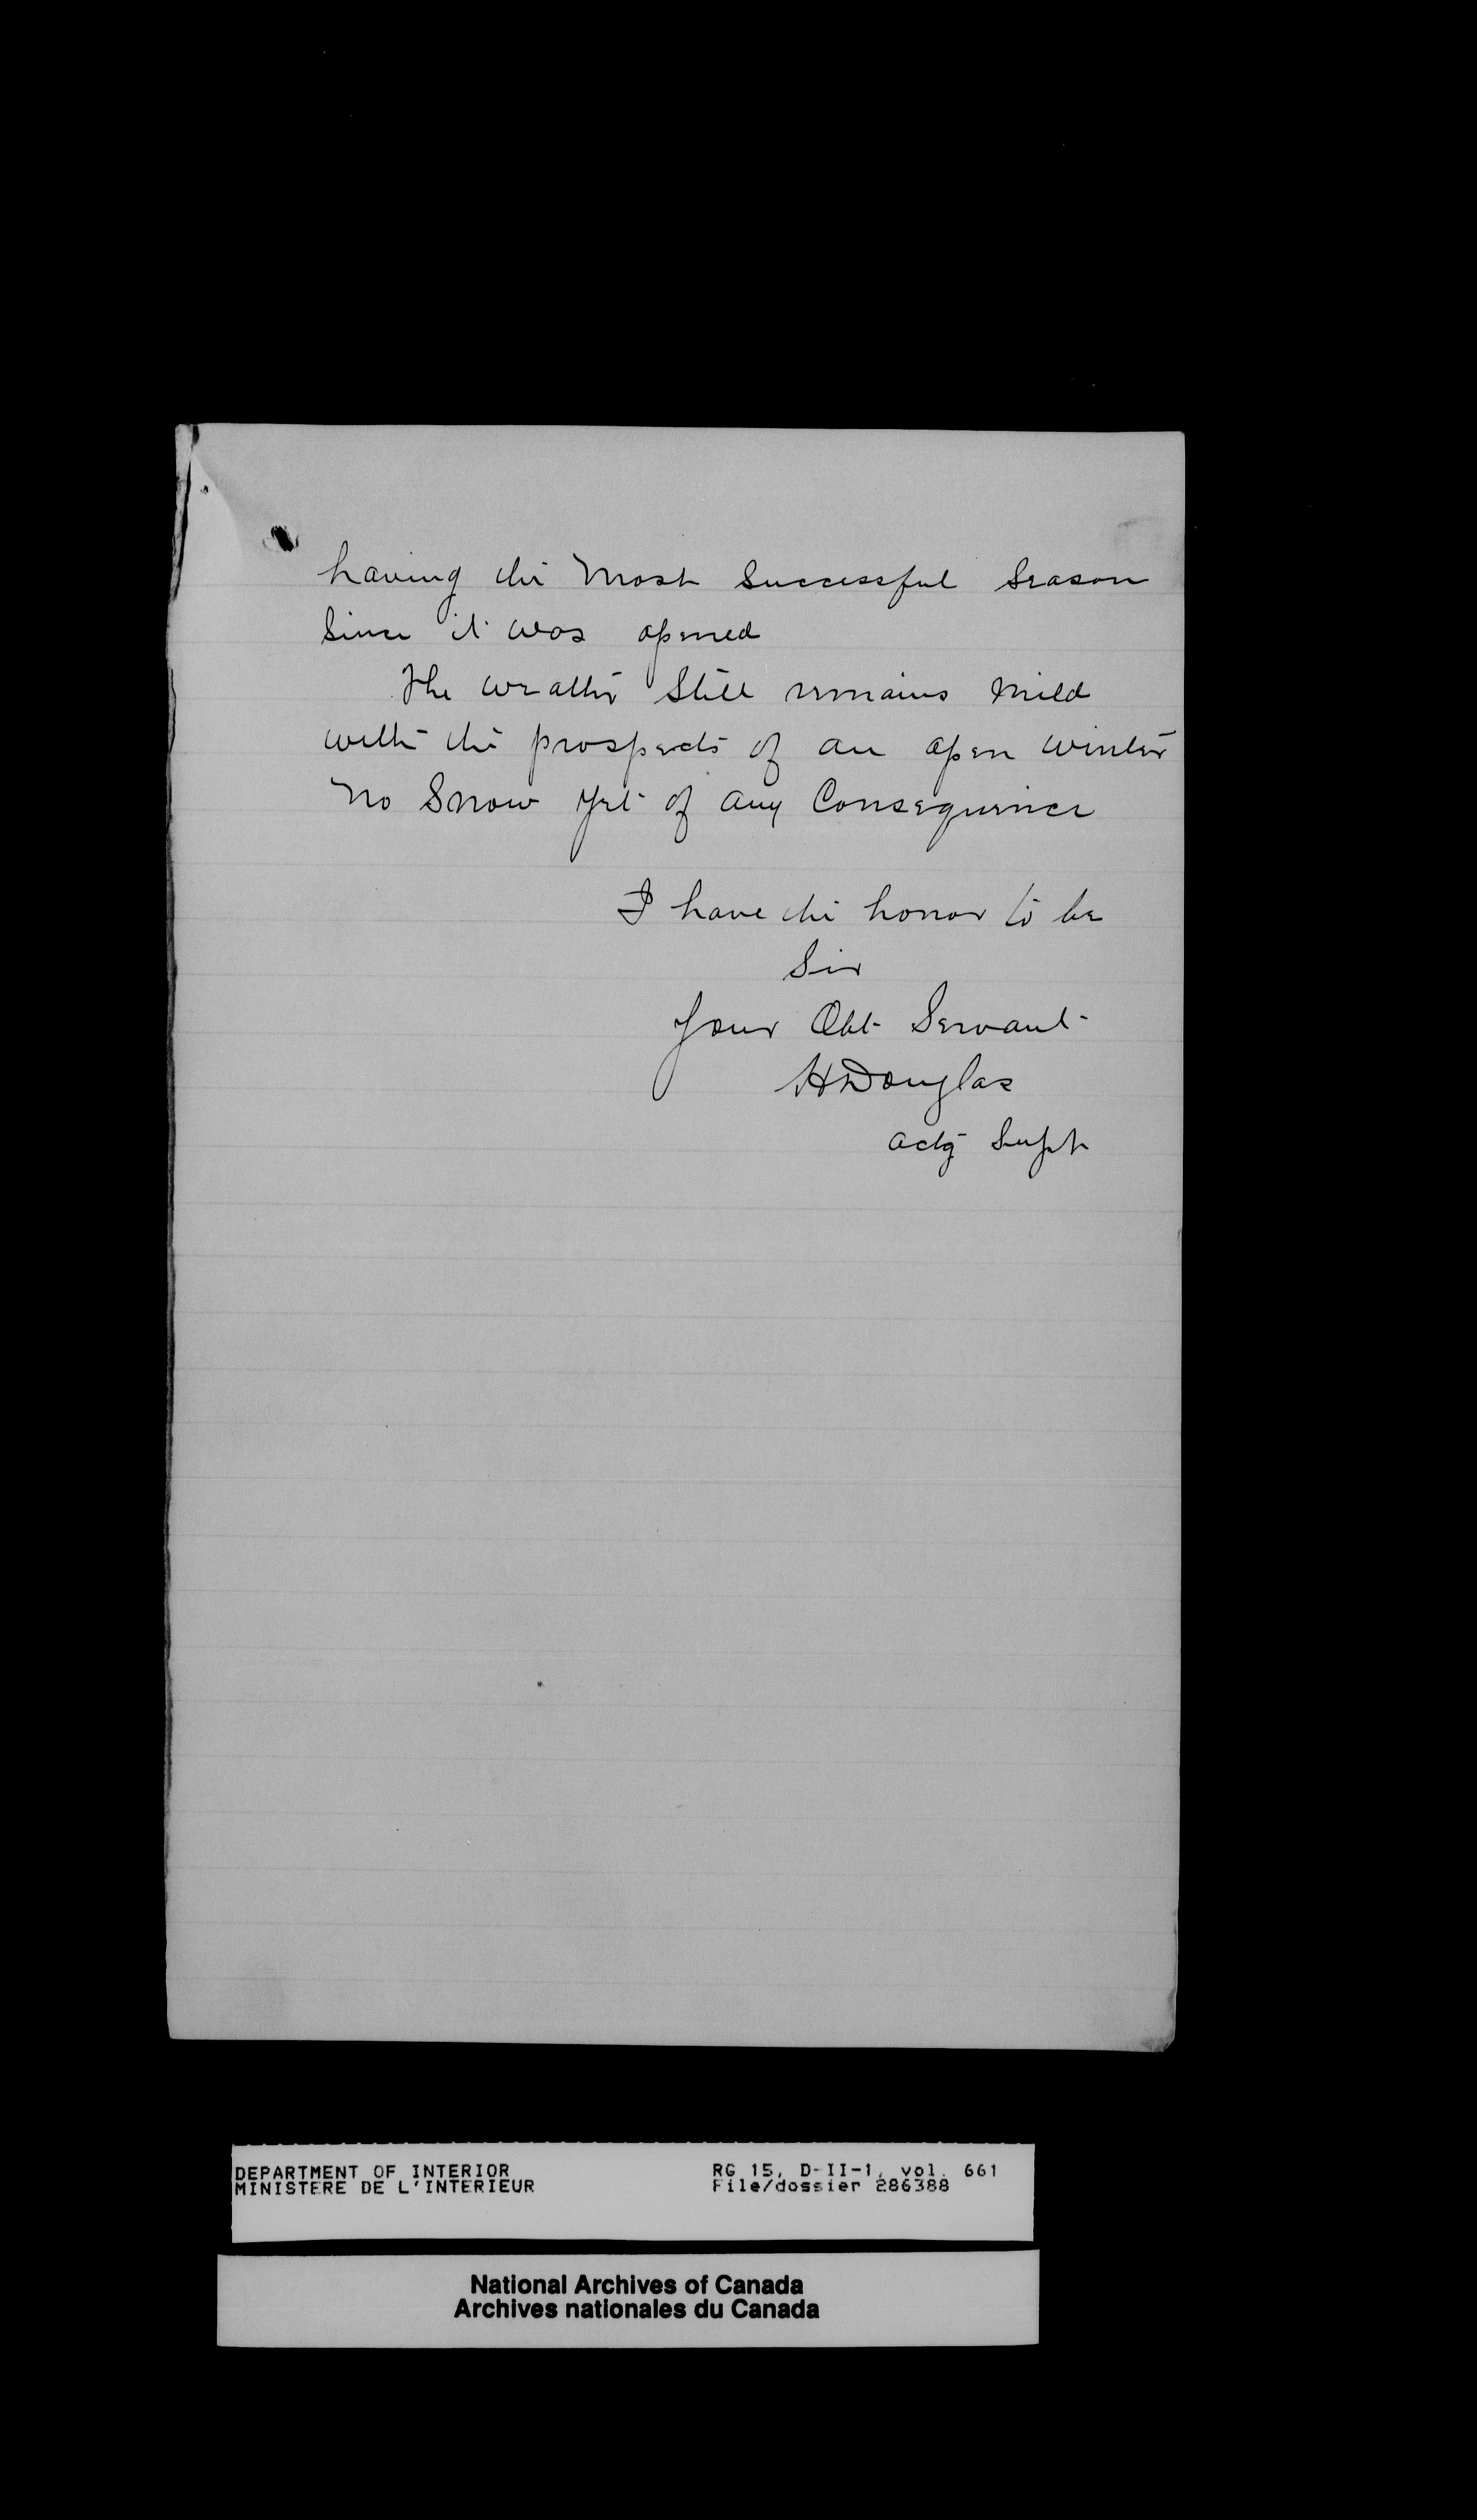 having the most successful season
since it was opened
The weather still remains mild
with the prospects of an open winter
no snow yet of any consequence
I have the honor to be
Sir
Your Obt Servant
H Douglas
actg Supt
DEPARTMENT OF INTERIOR RG 15, D-II-1, vol. 661
MINISTERE DE L'INTERIEUR File/dossier 286388
National Archives of Canada
Archives nationales du Canada